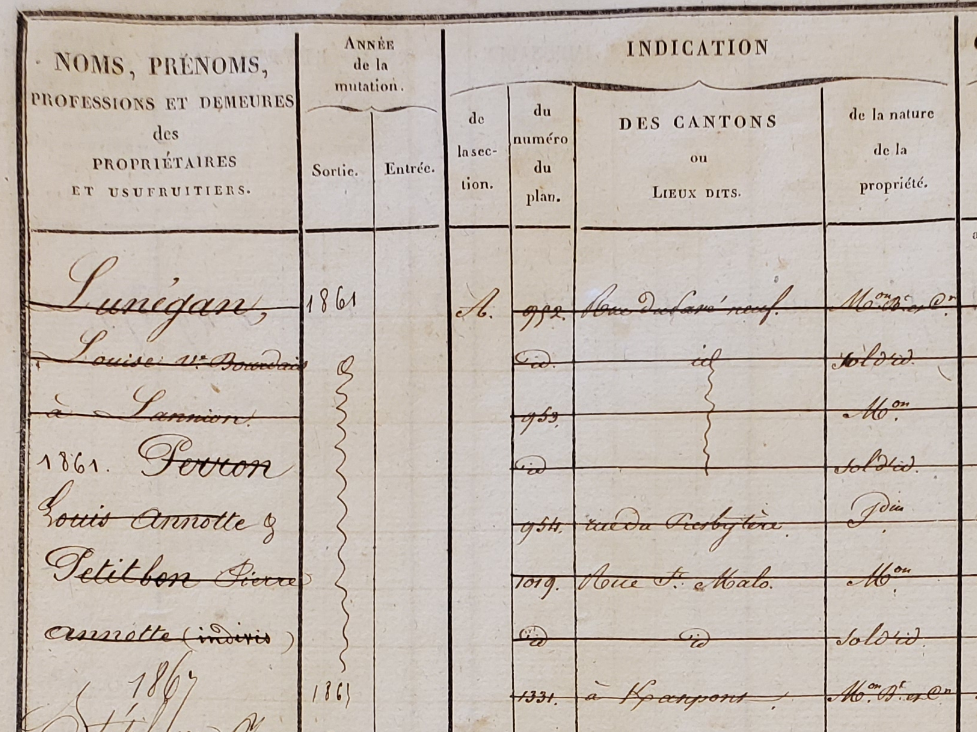 NOMS, PRÉNOMS,
PROFESSIONS ET DEMEURES
des
PROPRIÉTAIRES
ET USUFRUITIERS.
ANNÉE
de la
mutation.
Sortie. Entrée.
INDICATION
de
la sec-
tion.
du
numéro
du
plan.
DES CANTONS
ou
LIEUX DITS.
de la nature
de la
propriété.
Lunégan, 1861 A. 952. Rue du Pavé neuf. Mon Bt et Cn
Louise Ve Bourdais id. id sol d'id.
à Lannion. 953. Mon
1861. Perron id sol d'id.
Louis Annotte & 954. rue du Presbytère Jdin
Petitbon Pierre 1019. Rue St Malo. Mon
annotte (indivis) id id sol d'id
1867 186 1331. à Mon Bt et Cn